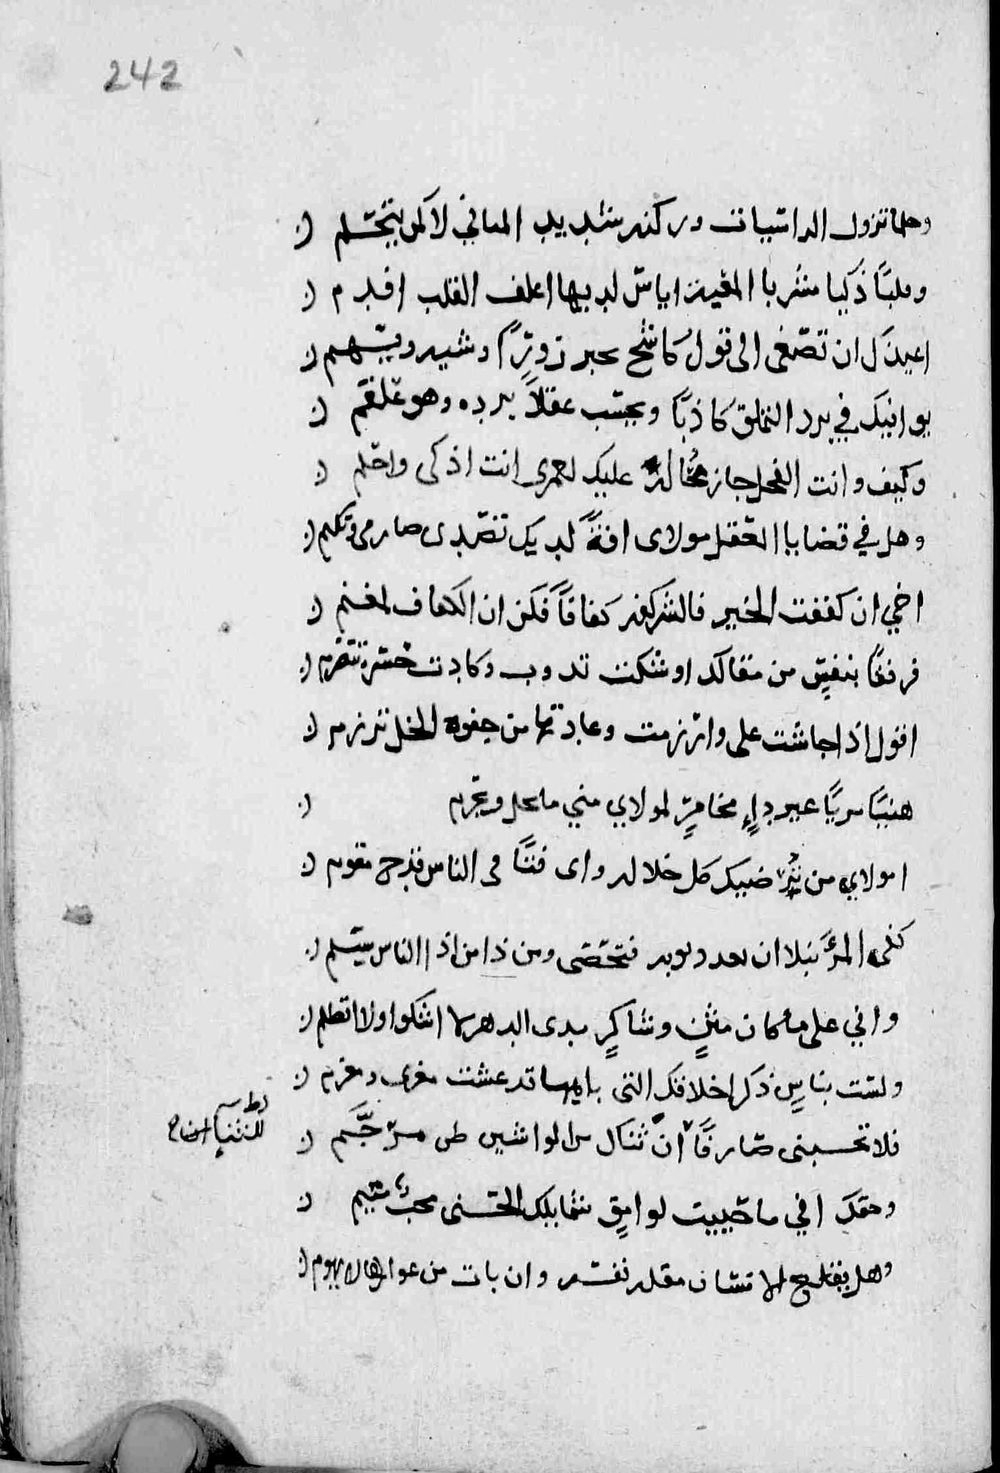 242
وحلما تزول الراسيات وركنه شديد المباني لا كمن يتحلم
ولبا ذكيا مشربا المعية اياس لديها اعلف القلب افدم
اعيذك ان تصغي الى قول كاشح يحبر زورا وشيه ويسهم
يوافيك في برد التملق كاذبا ويحسب عقلا برده وهو علقم
وكيف وانت الفحل جاز محاله عليك لعمري انت اذكى واحلم
وهل في قضايا العقل مولاى افة لديك تصدى صارمي وتكلم
اخي ان كففت الخير فالشر كفه كفافا فكن ان الكفاف لمغنم
فرفقا بنفس من مقالك اوشكت تذوب وكادت حسرة تتضرم
اقول اذا جاشت علي وارزمت وعادتها من جفوه الخل ترزم
هنيا مريا غير داء مخامر لمولاي مني ما يحل ويحرم
امولاي من يرضيك كل خلاله واى فتى في الناس قدح مقوم
كفى المرء نبلا ان تعد ذنوبه فتحصى ومن ذا من اذا الناس يسلم
واني على ما كان مثن وشاكر مدى الدهر لا اشكوا ولا اتظلم
ولست بناس ذكر اخلاقك التى بايهما قد عشت مغرى ومغرم
فلا تحسبنى صارفا ان ثناك من الواشين ظن مرجم
وحقك اني ما حييت لوامق شمايلك الحسنى محب متيم
وهل يفلح الانسان مقله نفسه وان بات من عوارها لا يهوم